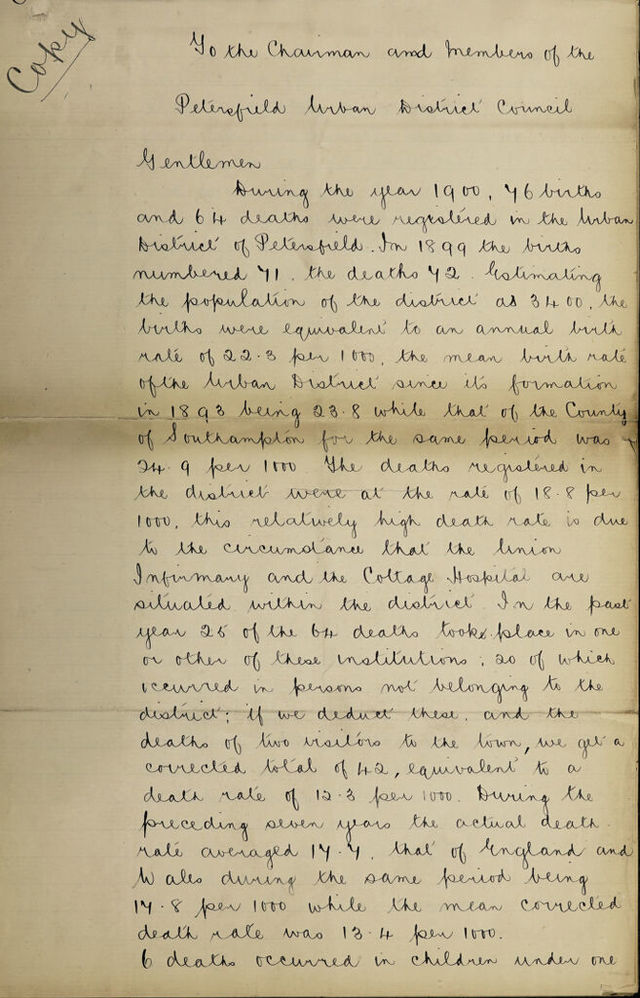 Copy
To the Chairman and Members of the
Petersfield Urban District Council
Gentlemen
During the year 1900, 76 births
and 64 deaths were registered in the Urban
District of Petersfield. In 1899 the births
numbered 71, the deaths 72. Estimating
the population of the district as 3400, the
births were equivalent to an annual birth
rate of 22.3 per 1000, the mean birth rate
of the Urban District since its formation
in 1893 being 23.8 while that of the County
of Southampton for the same period was
24.9 per 1000. The deaths registered in
the district were at the rate of 18.8 per
1000, this relatively high death rate is due
to the circumstance that the Union
Infirmary and the Cottage Hospital are
situated within the district. In the past
year 25 of the 64 deaths took place in one
or other of these institutions; 20 of which
occurred in persons not belonging to the
district; if we deduct these, and the
deaths of two visitors to the town, we get a
corrected total of 42, equivalent to a
death rate of 12.3 per 1000. During the
preceding seven years the actual death
rate averaged 17.7, that of England and
Wales during the same period being
17.8 per 1000 while the mean corrected
death rate was 13.4 per 1000.
6 deaths occurred in children under one